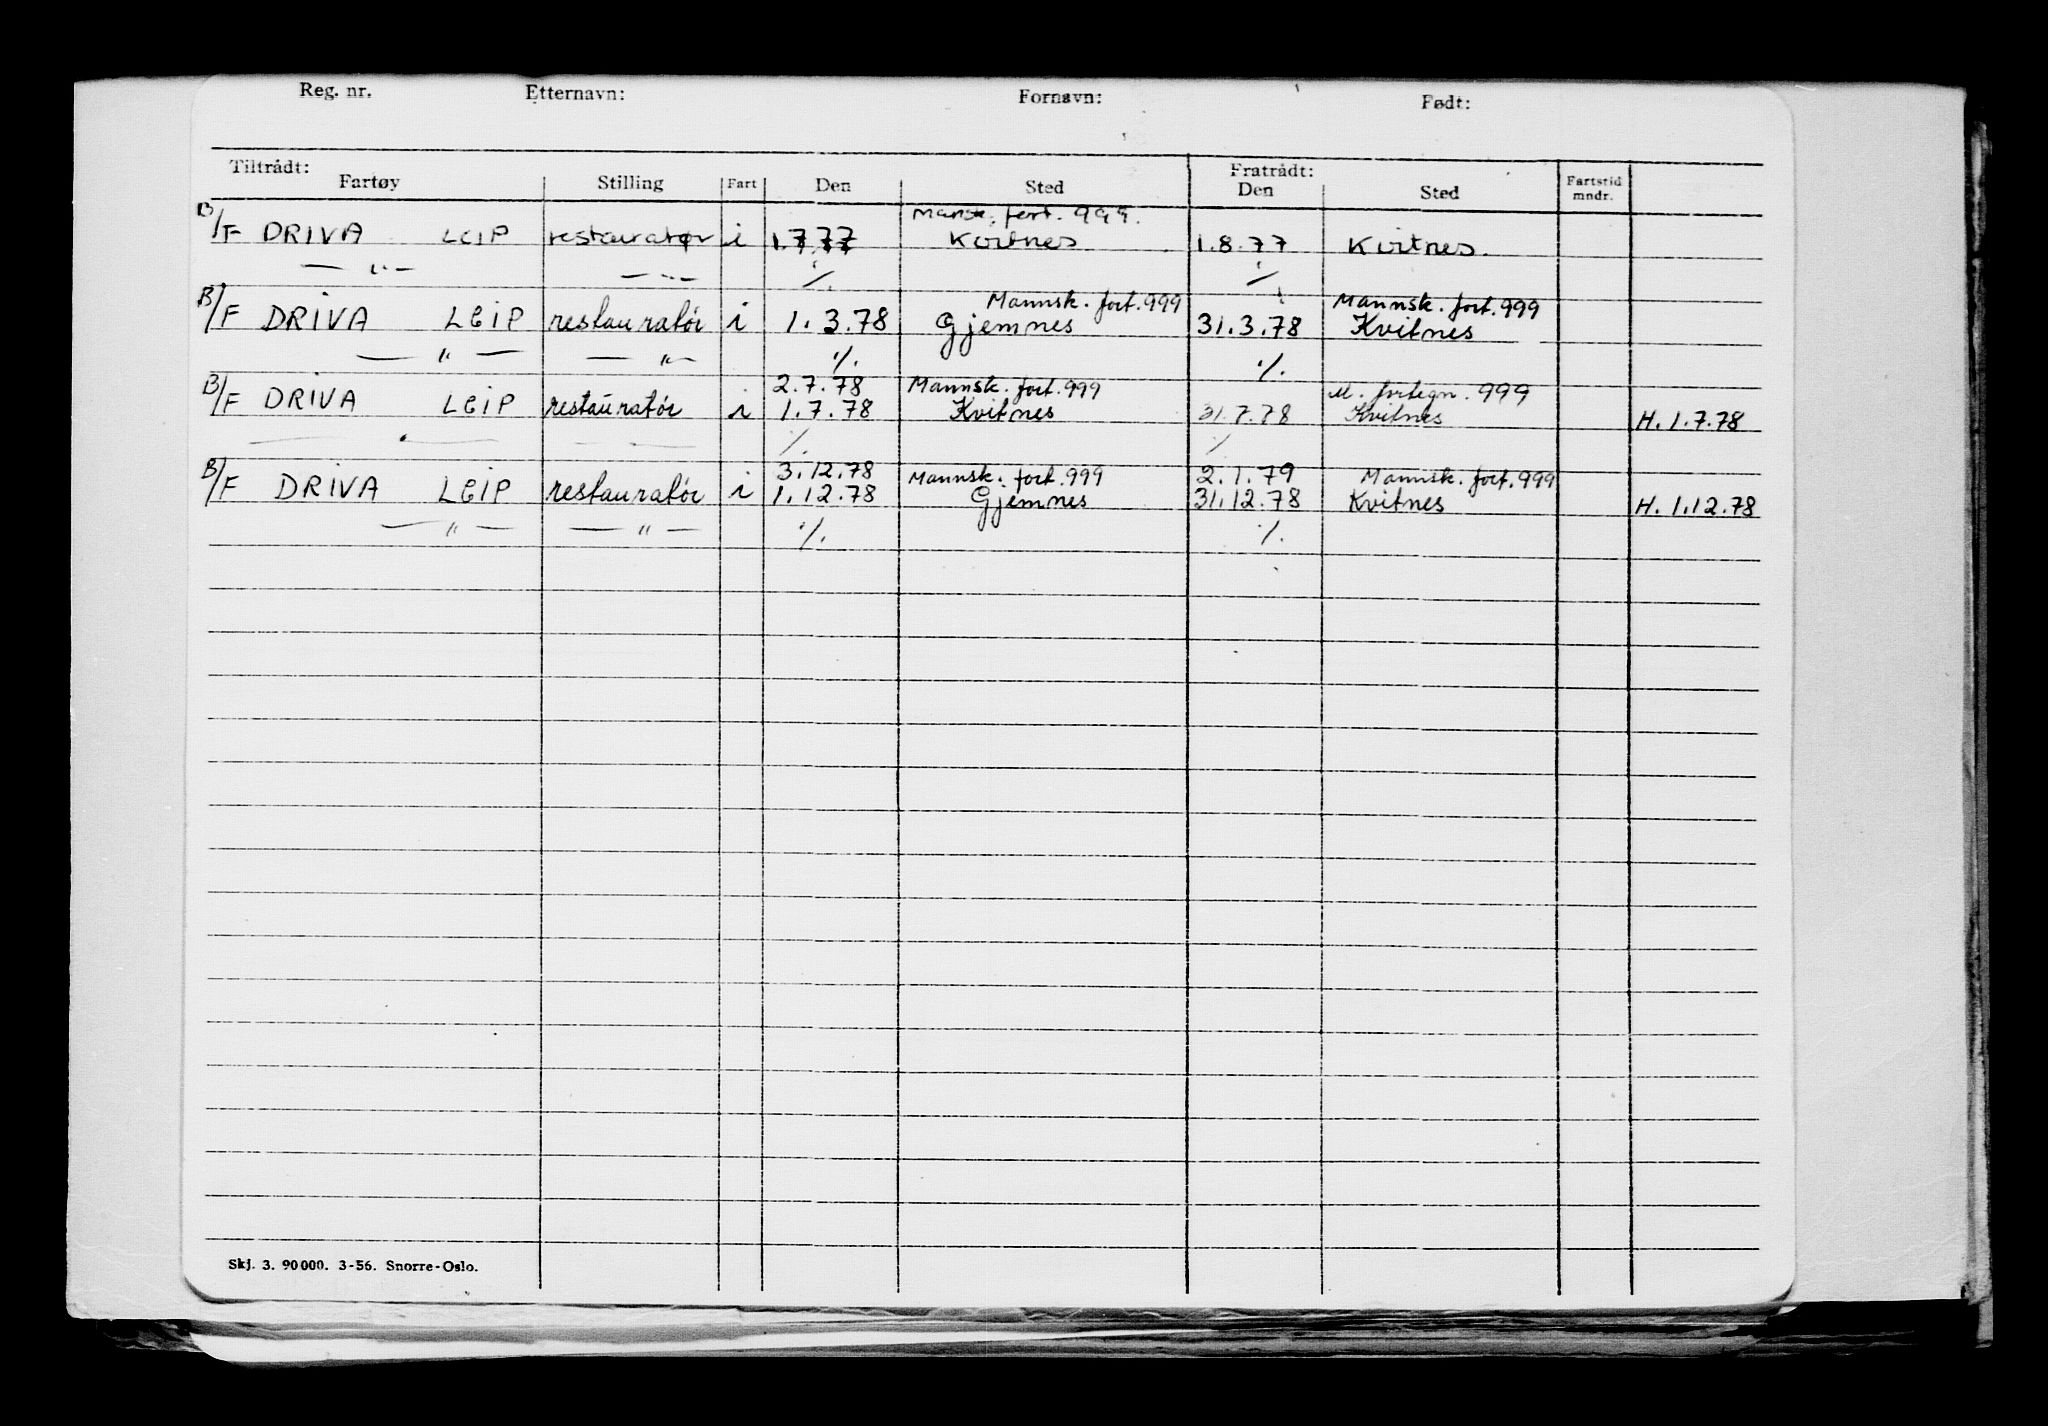 Reg. nr. Etternavn: Fornavn: Født:
Tiltrådt: Fratrådt:
Fartøy Stilling Fart Den Sted Den Sted Fartstid mndr.
Mansk. fort. 999.
B/F DRIVA LEIP restauratør i 1.7.77 Kvitnes 1.8.77 Kvitnes.
— " — — " — ·/. ·/.
Mannsk. fort. 999 Mannsk. fort. 999
B/F DRIVA LEIP restauratør i 1.3.78 Gjemnes 31.3.78 Kvitnes
— " — — " — ·/. ·/.
2.7.78 Mannsk. fort. 999 M. fortegn. 999
B/F DRIVA LEIP restauratør i 1.7.78 Kvitnes 31.7.78 Kvitnes H. 1.7.78
— " — — — ·/. ·/.
3.12.78 Mannsk. fort. 999 2.1.79 Mannsk. fort. 999
B/F DRIVA LEIP restauratør i 1.12.78 Gjemnes 31.12.78 Kvitnes H. 1.12.78
— " — — " — ·/. ·/.
Skj. 3. 90000. 3-56. Snorre-Oslo.